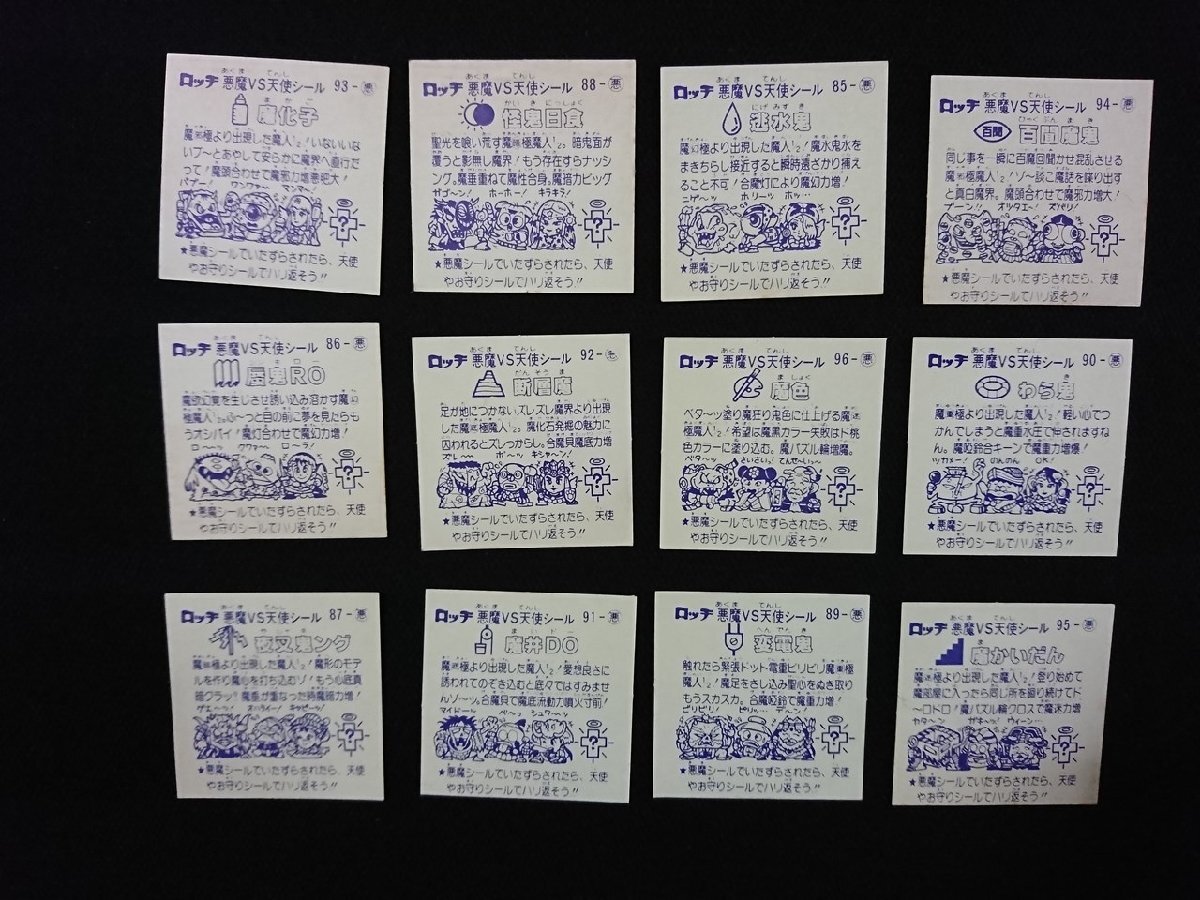 ロッヂ 悪魔VS天使シール 93-悪
魔化子
魔邪極より出現した魔人½!いないいな
いブ〜とあやして安らかに魔界へ直行だ
って!魔頭合わせて魔邪力増悪肥大!
★悪魔シールでいたずらされたら、天使
やお守りシールでハリ返そう!!
ロッヂ 悪魔VS天使シール 88-悪
かいきにっしょく
怪鬼日食
聖光を喰い荒す魔 極魔人½3、暗鬼面が
覆うと影無し魔界!もう存在すらナッシ
ング。魔垂重ねて魔性合身。魔暗力ビッグ
ガゴ〜ン! ホーホー! キラキラ!
★悪魔シールでいたずらされたら、天使
やお守りシールでハリ返そう!!
ロッヂ 悪魔VS天使シール 85-悪
にげみずき
逃水鬼
魔幻極より出現した魔人½!魔水鬼水を
まきちらし接近すると瞬時遠ざかり捕え
ること不可!合魔灯により魔幻力増!
ニゲ〜ッ ホリーッ ホッ…
★悪魔シールでいたずらされたら、天使
やお守りシールでハリ返そう!!
ロッヂ 悪魔VS天使シール 94-悪
ひゃくぶんまき
百聞 百聞魔鬼
同じ事を一瞬に百魔回聞かせ混乱させる
魔邪極魔人½!ゾ〜談こ魔誌を喋り出す
と真白魔界。魔頭合わせて魔邪力増大!
ブーン!! オッタエー! ズバリ!
★悪魔シールでいたずらされたら、天使
やお守りシールでハリ返そう!!
ロッヂ 悪魔VS天使シール 86-悪
蜃鬼RO
魔欲幻覚を生じさせ誘い込み溶かす魔幻
極魔人½。ふ〜っと目の前に夢を見たらも
うオシバイ!魔灯合わせて魔幻力増!
ロ〜〜ッ クワァ〜 ロ〜ラ!
★悪魔シールでいたずらされたら、天使
やお守りシールでハリ返そう!!
ロッヂ 悪魔VS天使シール 92-
だんそうま
断層魔
足が地につかないズレズレ魔界より出現
した魔 極魔人½3。魔化石発掘の魅力に
囚われるとズレつからし。合魔貝魔底力増
ズレ〜 ボ〜ッ キシャ〜ン!
★悪魔シールでいたずらされたら、天使
やお守りシールでハリ返そう!!
ロッヂ 悪魔VS天使シール 96-悪
ましょく
魔色
ベタ〜ッ塗り魔狂り鬼色に仕上げる魔迷
極魔人½!希望は魔黒カラー失敗はド桃
色カラーに塗り込む。魔パズル輪増魔。
ベタ〜ッ さいさい! てんせ〜いっ
★悪魔シールでいたずらされたら、天使
やお守りシールでハリ返そう!!
ロッヂ 悪魔VS天使シール 90-悪
わら鬼
魔重極より出現した魔人½!軽い心でつ
かんでしまうと魔重水圧で伸されますね
ん。魔啞鈴合キーンで魔重力増爆!
ツカメ〜! のんのん OK!
★悪魔シールでいたずらされたら、天使
やお守りシールでハリ返そう!!
ロッヂ 悪魔VS天使シール 87-悪
夜叉鬼ング
魔 極より出現した魔人½!魔形のモデ
ルを作り魔心を打ち込むゾ!もう心底真
暗クラッ!魔垂が重なった時魔暗力増!
ゲエ〜ッ! オハライ! キャピーッ!
★悪魔シールでいたずらされたら、天使
やお守りシールでハリ返そう!!
ロッヂ 悪魔VS天使シール 91-悪
まいどー
魔井DO
魔 極より出現した魔人½!愛想良さに
誘われてのぞき込むと底々ではすみませ
んソ〜ッ。合魔貝で魔底流動力噴火寸前!
マイドーッ ベ〜ッ シュワ〜ッ
★悪魔シールでいたずらされたら、天使
やお守りシールでハリ返そう!!
ロッヂ 悪魔VS天使シール 89-悪
へんでんき
変電鬼
触れたら緊張ドット電重ビリビリ魔重極
魔人½!魔足をさし込み聖心をぬき取り
もうスカスカ。合魔啞鈴で魔重力増!
ビリビリ! ピリッ… デーン!
★悪魔シールでいたずらされたら、天使
やお守りシールでハリ返そう!!
ロッヂ 悪魔VS天使シール 95-悪
魔かいだん
魔迷極より出現した魔人½!登り始めて
魔部屋に入ったら同じ所を廻り続けてド
〜ロドロ!魔パズル輪クロスで魔迷力増
カタ〜ン ガネ〜ッ! ウィーン…
★悪魔シールでいたずらされたら、天使
やお守りシールでハリ返そう!!